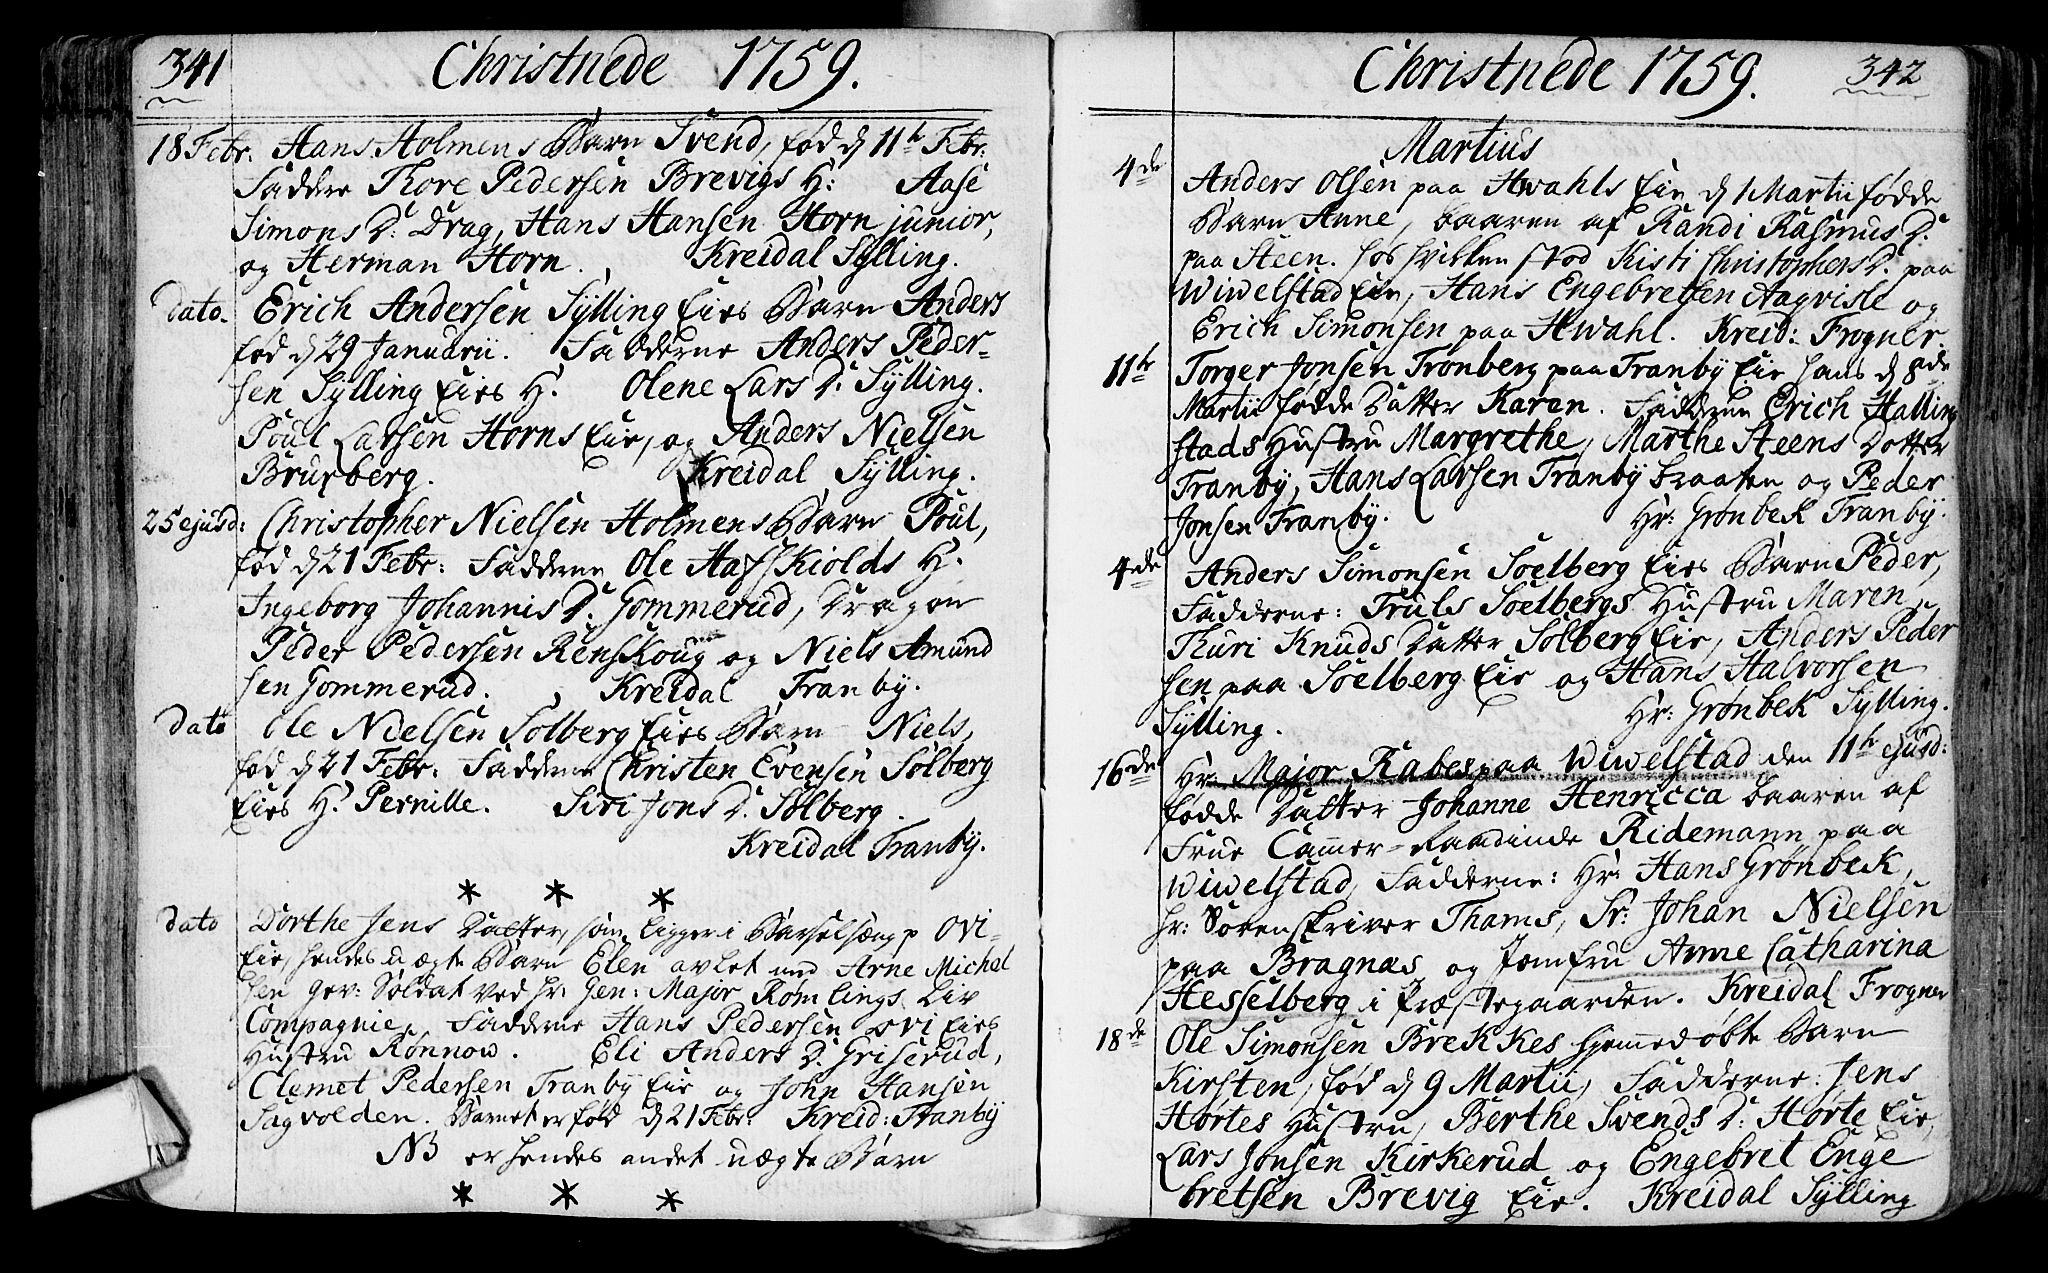 341 Christnede 1759.
18 Febr. Hans Holmens Barn Svend, fød d 11te Febr:
Faddere Thore Pedersen Brevigs H: Aase
Simons D: Drag, Hans Hansen Horn junior,
og Herman Horn. Kreidal Sylling.
dato. Erich Andersen Sylling Eies Barn Anders
fød d 29 Januarii. Fadderne Anders Peder-
sen Sylling Eies H: Olene Lars D: Sylling.
Poul Larsen Horns Eie, og Anders Nielsen
Bruxberg. Kreidal Sylling.
25 ejusd: Christopher Nielsen Holmens Barn Poul,
fød d 21 Febr: Fadderne Ole Hafskiolds H:
Ingeborg Johannis D: Gommerud, Dragon
Peder Pedersen Renskoug og Niels Amund
sen Gommerud. Kreidal Tranby.
dato Ole Nielsen Solberg Eies Barn Niels,
fød d 21 Febr: Faddere Christen Evensen Solberg
Eies H: Pernille. Siri Jons D: Solberg.
Kreidal Tranby.
* * *
dato Dorthe Jens Datter, som ligger i Barselseng p Ovi-
Eie, hendes uægte Barn Elen avlet med Arne Michel
sen gev: Soldat ved hr: Gen: Major Rømlings Liv
Compagnie, Fadderne Hans Pedersen Ovi Eies
Hustru Rønnow. Eli Anders D: Griserud,
Clemet Pedersen Tranby Eie og John Hansen
Sagvolden. Barnet er fød d 21 Febr: Kreid: Tranby
NB er hendes andet uægte Barn
* * *
Christnede 1759. 342
Martius
4de Anders Olsen paa Hwahls Eie d 1 Martii fødde
Barn Anne, baaren af Randi Rasmus D:
paa Steen. hos hvilken stod Kisti Christophers D: paa
Wiwelstad Eie, Hans Engebretsen Aagvisle og
Erich Simonsen paa Hwahl. Kreid: Frogner.
11te Torger Jonsen Tronberg paa Tranby Eie hans d 8de
Martii fødde Datter Karen. Fadderne Erich Halling
stads Hustru Margrethe, Marthe Steens Dotter
Tranby, Hans Larsen Tranby braaten og Peder
Jonsen Tranby. Hr: Grønbek Tranby.
4de Anders Simonsen Soelberg Eies Barn Peder,
Fadderne: Truls Soelbergs Hustru Maren,
Thuri Knuds Datter Solberg Eie, Anders Peder
sen paa Soelberg Eie og Hans Halvorsen
Sylling. Hr: Grønbek Sylling.
16de Hr: Major Rabes paa Wiwelstad den 11te ejusd:
fødde Datter Johanne Henricca baaren af
Frue Cammer-Raadinde Ridemann paa
Wiwelstad, Fadderne: Hr: Hans Grønbek,
Hr: Sorenskriver Thams, Sr: Johan Nielsen
paa Bragnæs og Jomfru Anne Catharina
Hesselberg i Præstegaarden. Kreidal Frogner
18de Ole Simonsen Brekkes hjemmedøbte Barn
Kirsten, fød d 9 Martii, Fadderne: Jens
Hørtes Hustru, Berthe Svends D: Hørte Eie,
Lars Jonsen Kirkerud og Engebret Enge
bretsen Brevig Eie. Kreidal Sylling